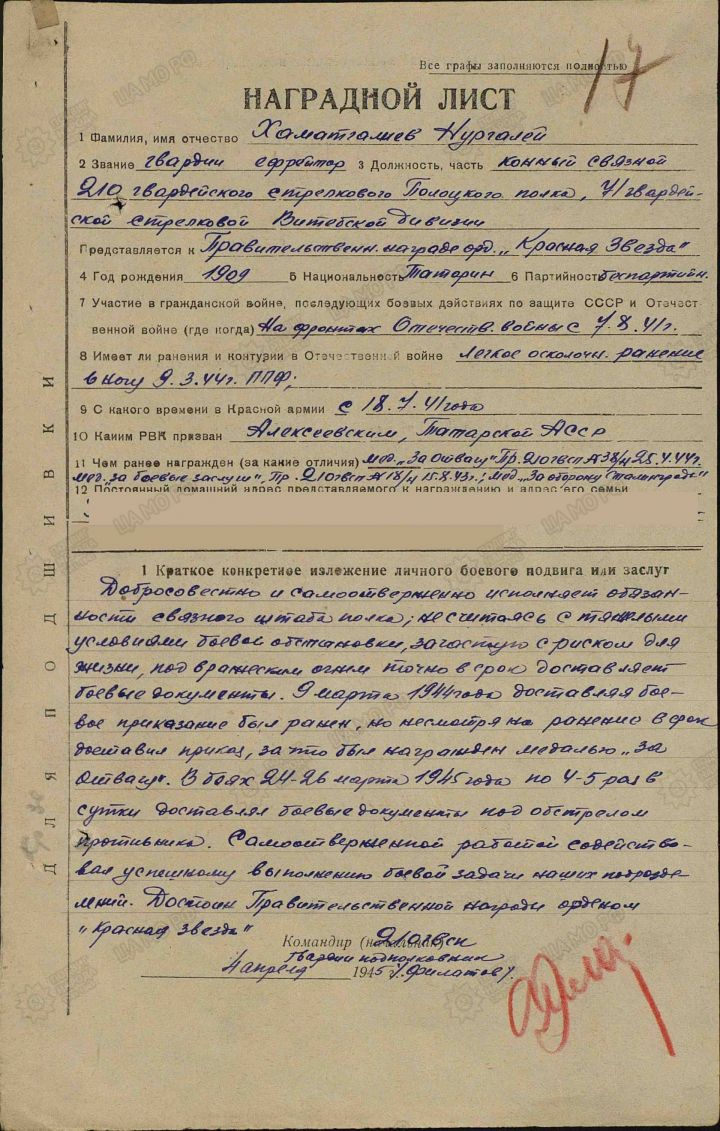 Все графы заполняются полностью
17
НАГРАДНОЙ ЛИСТ
1 Фамилия, имя отчество Хаматгалиев Нургалей
2 Звание гвардии ефрейтор 3 Должность, часть конный связной
210 гвардейского стрелкового Полоцкого полка, 71 гвардей-
ской стрелковой Витебской дивизии
Представляется к Правительственн. награде орд. „Красная Звезда"
4 Год рождения 1909 5 Национальность Татарин 6 Партийность беспартийн.
7 Участие в гражданской войне, последующих боевых действиях по защите СССР и Отечест-
венной войне (где когда) На фронтах Отечеств. войны с 7.8.41г.
8 Имеет ли ранения и контузии в Отечественной войне легкое осколочн. ранение
в ногу 9.3.44г. ППФ;
9 С какого времени в Красной армии с 18.7.41 года
10 Каким РВК призван Алексеевским, Татарской АССР
11 Чем ранее награжден (за какие отличия) мед. „За Отвагу" Пр. 210гвсп №38/н 25.4.44г.
мед. „за боевые заслуги", Пр. 210гвсп №18/н 15.8.43г.; мед. „За оборону Сталинграда"
12 Постоянный домашний адрес представляемого к награждению и адрес его семьи
1 Краткое конкретное изложение личного боевого подвига или заслуг
Добросовестно и самоотверженно исполняет обязан-
ности связного штаба полка; не считаясь с тяжелыми
условиями боевой обстановки, зачастую с риском для
жизни, под вражеским огнем точно в срок доставляет
боевые документы. 9 марта 1944 года доставляя бое-
вое приказание был ранен, но несмотря на ранение в срок
доставил приказ, за что был награжден медалью „за
Отвагу". В боях 24-26 марта 1945 года по 4-5 раз в
сутки доставлял боевые документы под обстрелом
противника. Самоотверженной работой содейство-
вал успешному выполнению боевой задачи наших подразде-
лений. Достоин Правительственной награды орденом
"Красная Звезда"
Командир (начальник) 210гвсп
Гвардии подполковник
4 апреля 1945 г. /Филатов/
ДЛЯ ПОДШИВКИ
ЦАМО РФ